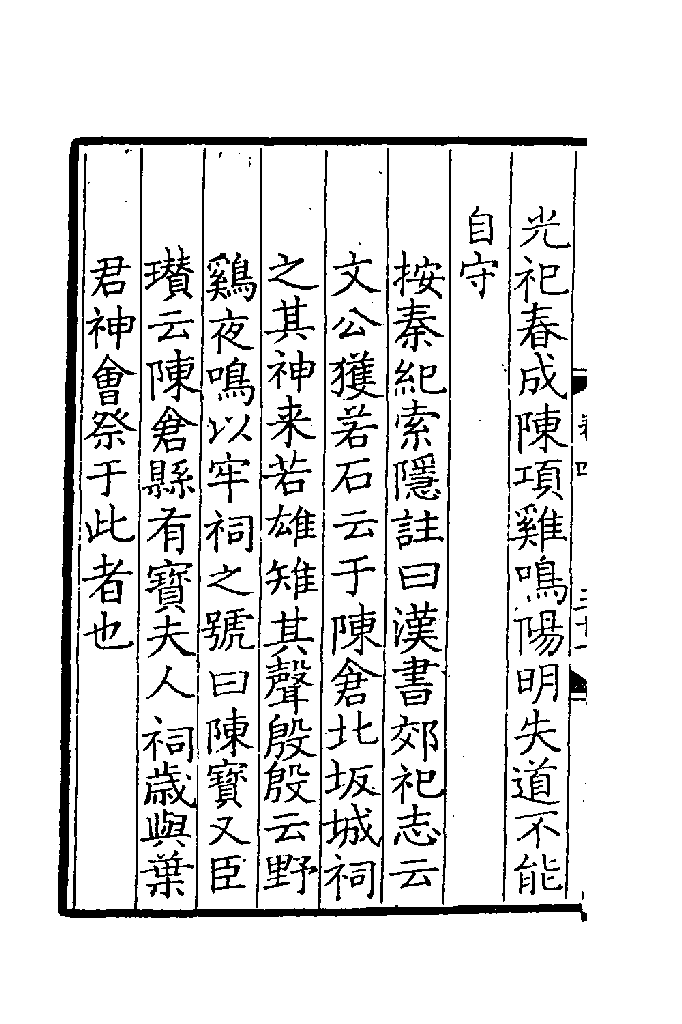 光祀春成陳項雞鳴陽明失道不能
自守
按秦紀索隱註曰漢書郊祀志云
文公獲若石云于陳倉北坂城祠
之其神来若雄雉其聲殷殷云野
鷄夜鳴以牢祠之號曰陳寶又臣
瓚云陳倉縣有寶夫人祠歳與葉
君神會祭于此者也